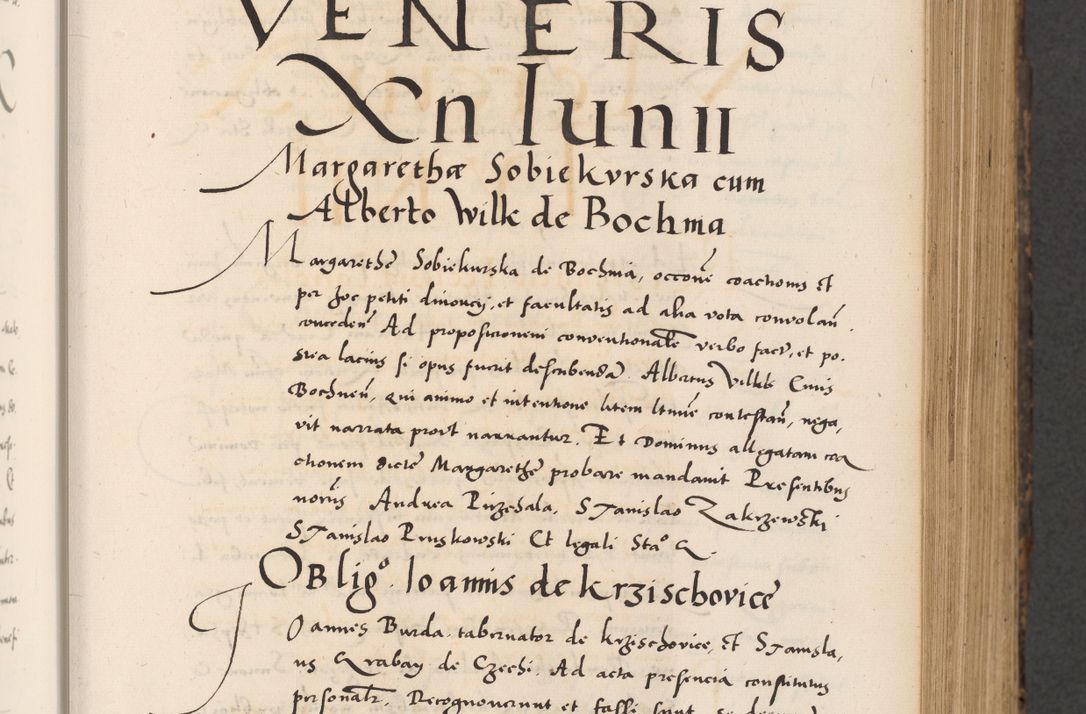 VENERIS
Xn Iunii
Margarethæ Sobiekurska cum
Alberto Wilk de Bochma
Margarethe Sobiekurska de Bochnia, occone coactionis et
per hoc petiti divorcy, et facultatis ad alia vota convolan
conceden Ad propositionem conventionale verbo fact, et po,
stea lacius si opus fuerit describenda Albertus Wilk Civis
Bochnen, qui animo et intentione litem ltime contestan, nega,
vit narrata prout narrantur. Et Dominus allegatam coa
ctionem dicte Margarethe probare mandavit Presentibus
noriis Andrea Pirzchala, Stanislao Zakrzewski
Stanislao Pruskowski Et legali Stao
Obligo. Ioannis de krzischovice
Ioannes Burda tabernator de krzischovice, et Stanisla,
us Grabay de Czechi. Ad acta presencia constitutus
personalr. Recognoverunt et fassi sunt se